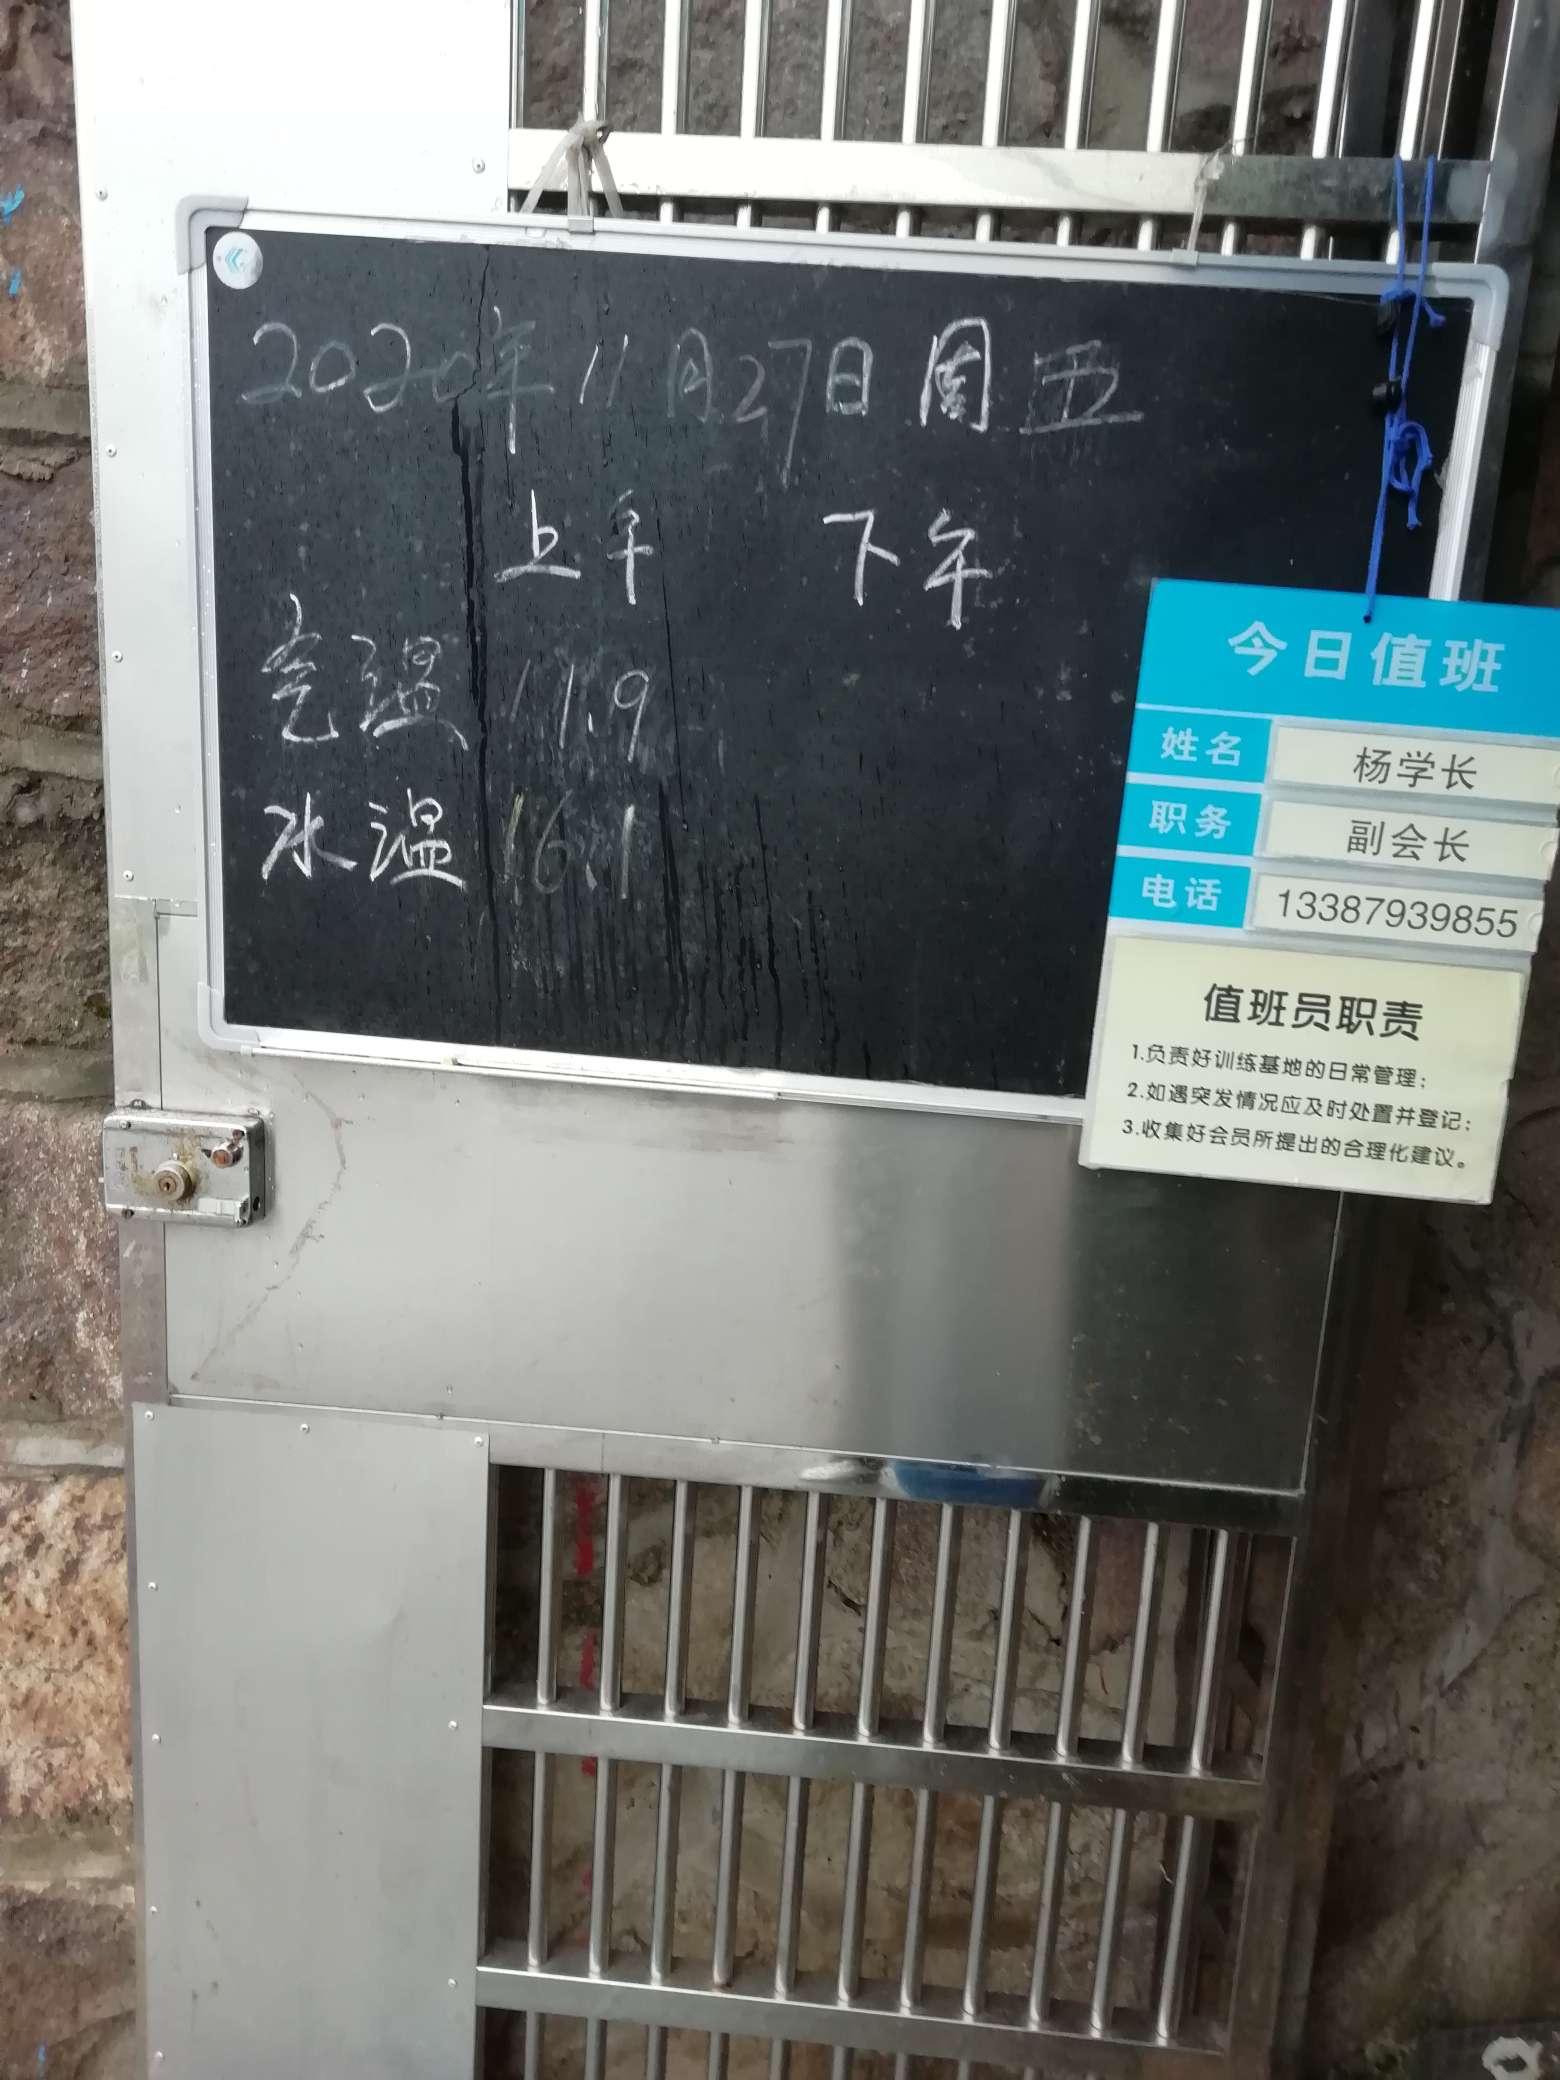 2020年11月27日周五
上午 下午
气温 11.9
水温 16.1
今日值班
姓名 杨学长
职务 副会长
电话 13387939855
值班员职责
1.负责好训练基地的日常管理；
2.如遇突发情况应及时处置并登记；
3.收集好会员所提出的合理化建议。